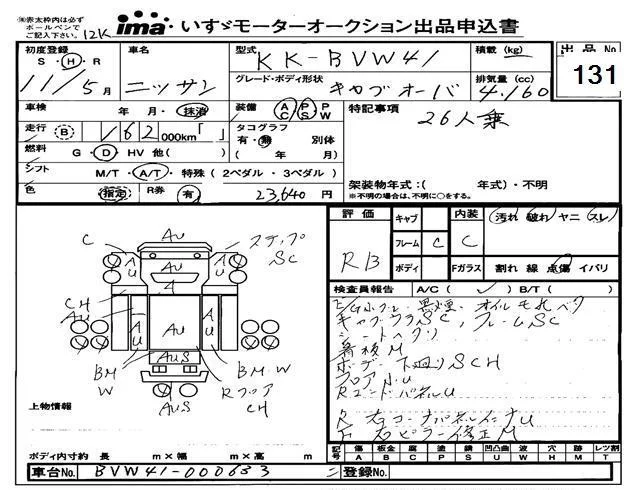 ※赤太枠内は必ず
ボールペンで
ご記入下さい。
12K
ima いすゞモーターオークション出品申込書
初度登録
S・H・R
11/5月
車名
ニッサン
型式
KK-BVW41
グレード・ボディ形状
キャブオーバ
積載(kg)
排気量(cc)
4,160
出品No
131
車検 年・月・抹消
装備 AC PS PW
特記事項
26人乗
走行 B 162 000km「 」
タコグラフ
有・無 別体
( 年 月)
燃料 G・D・HV 他( )
シフト M/T・A/T・特殊(2ペダル・3ペダル)
架装物年式:( 年式)・不明
※不明の場合は、不明に○をする。
色 指定 R券 有 23,640円
評価 RB
キャブ
フレーム C
ボディ
内装 C
汚れ 破れ ヤニ スレ
Fガラス 割れ 線 点傷 イバリ
検査員報告 A/C( ✓ ) B/T( )
黒煙・オイルモレ
キャブウラSC、フレームSC
シートヘタリ
看板M
ボデー下廻りSCH
フロアAU
RエンドパネルU
R右コーナパネルイナU
F右ピラー修正M
C
AU
ステップ
SC
AU
U
4
CH
AU
AU
AU
AUS
BM
W
BM・W
Rフロア
CH
AUS
上物情報
ボディ内寸約 長 m×幅 m×高 m
記号
傷 板金 腐 塗 錆 凹凸曲 波 穴 跡 レツ割
A B C P S U W H M T
車台No. BVW41-000633
登録No.